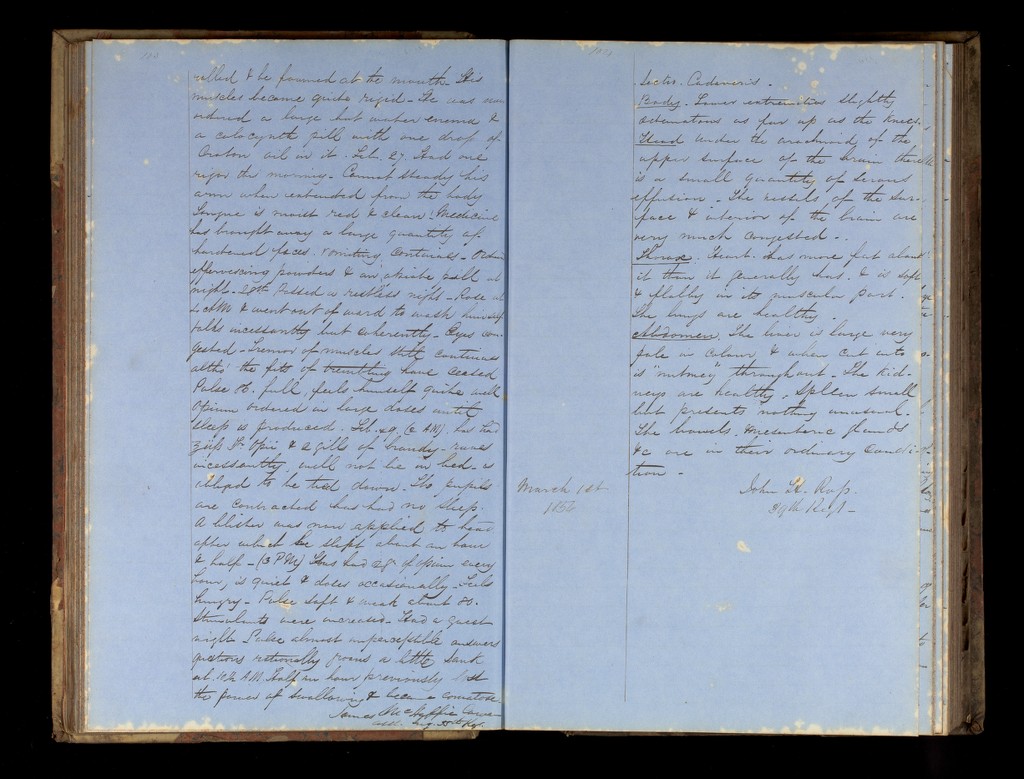 rolled & he foamed at the mouth - His
muscles became quite rigid - He was
ordered a large hot water enema &
a colocynth pill with one drop of
Croton oil in it. Feb. 27. Had one
rigor the morning - Cannot steady his
arm when extended from the body
Tongue is moist red & clean. Medicine
has brought away a large quantity of
hardened feces. Vomiting continues -
effervescing powders & an opiate pill at
night - 28th Passed a restless night - Rose at
4 AM & went out of ward to wash himself
talks incessantly but coherently - Eyes con-
gested - Tremor of muscles still continues
altho' the fits of trembling have ceased
Pulse 76. full, feels himself quite well
Opium ordered in large doses until
sleep is produced. Feb. 29. (6 AM) has had
Tr Opii & 2 gills of brandy - raves
incessantly will not lie in bed. is
obliged to be tied down - The pupils
are contracted has had no sleep.
A blister was now applied to head
after which he slept about an hour
& half - (3 PM) Has had of opium every
hour, is quiet & doses occasionally - Feels
hungry - Pulse soft & weak about 80.
Stimulants were increased - Had a quiet
night Pulse almost imperceptible answers
questions rationally from a little sank
at. AM. Half an hour previously lost
the power of swallowing & became comatose
James
Asst. Surg.
March 1st
1856
Sectio. Cadaveris.
Body - Lower extremities slightly
Oedematous as far up as the Knees.
Head under the arachnoid of the
upper surface of the brain there
is a small quantity of serous
effusion - The vessels of the sur-
face & interior of the brain are
very much congested -.
Thorax. Heart. has more fat about
it than it generally has. & is soft
& flabby in its muscular part.
The lungs are healthy.
Abdomen. The liver is large very
pale in colour & when cut into
is "nutmeg" throughout - The kid-
neys are healthy. Spleen small
but presents nothing unusual.
The bowels. mesenteric glands
&c are in their ordinary condi-
tion -
John
Regt -